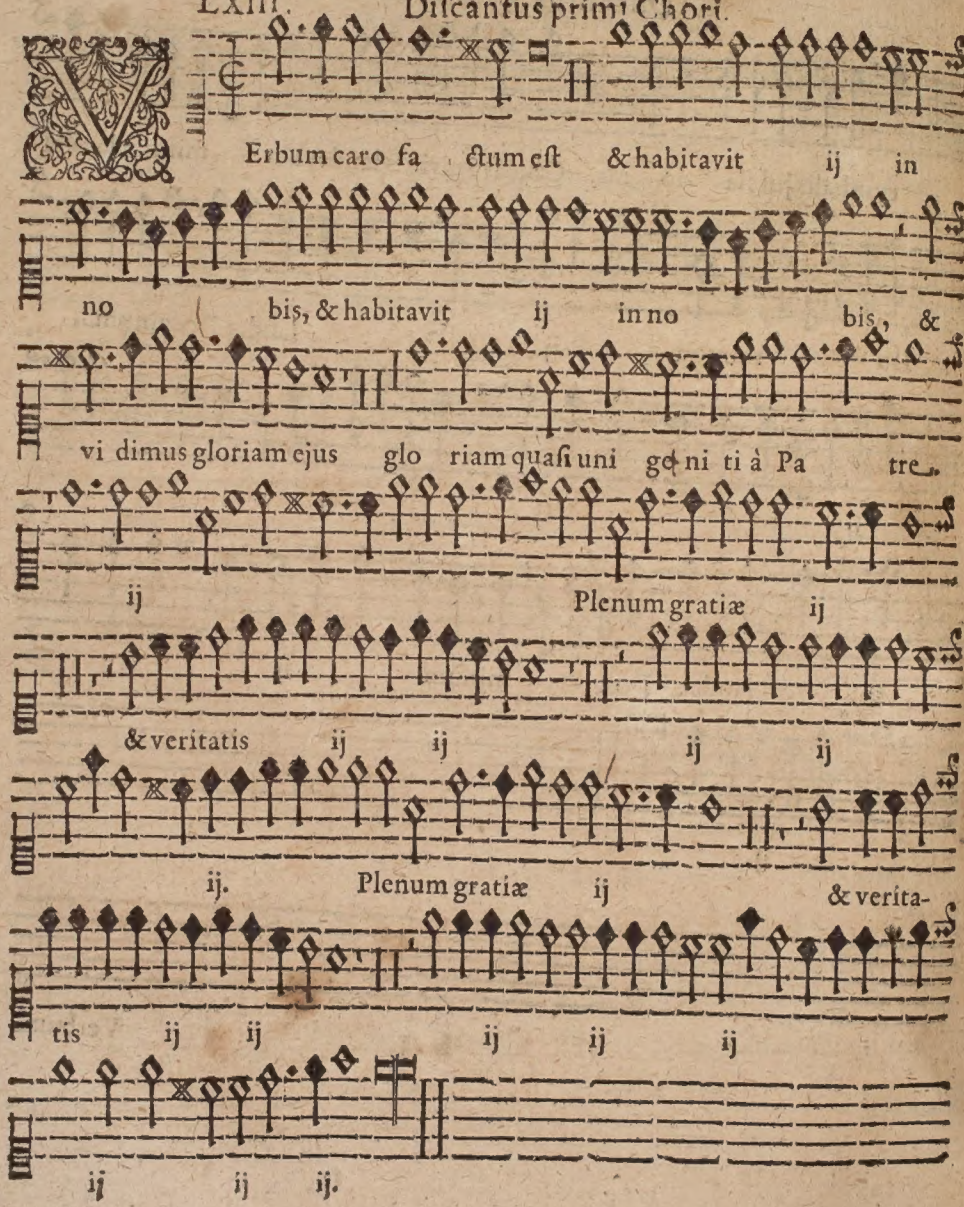 LXIII. Discantus primi Chori.
VErbum caro fa ctum est & habitavit ij in
no bis, & habitavit ij in no bis, &
vi dimus gloriam ejus glo riam quasi uni ge ni ti à Pa tre.
ij Plenum gratiæ ij
& veritatis ij ij ij ij
ij. Plenum gratiæ ij & verita-
tis ij ij ij ij ij
ij ij ij.